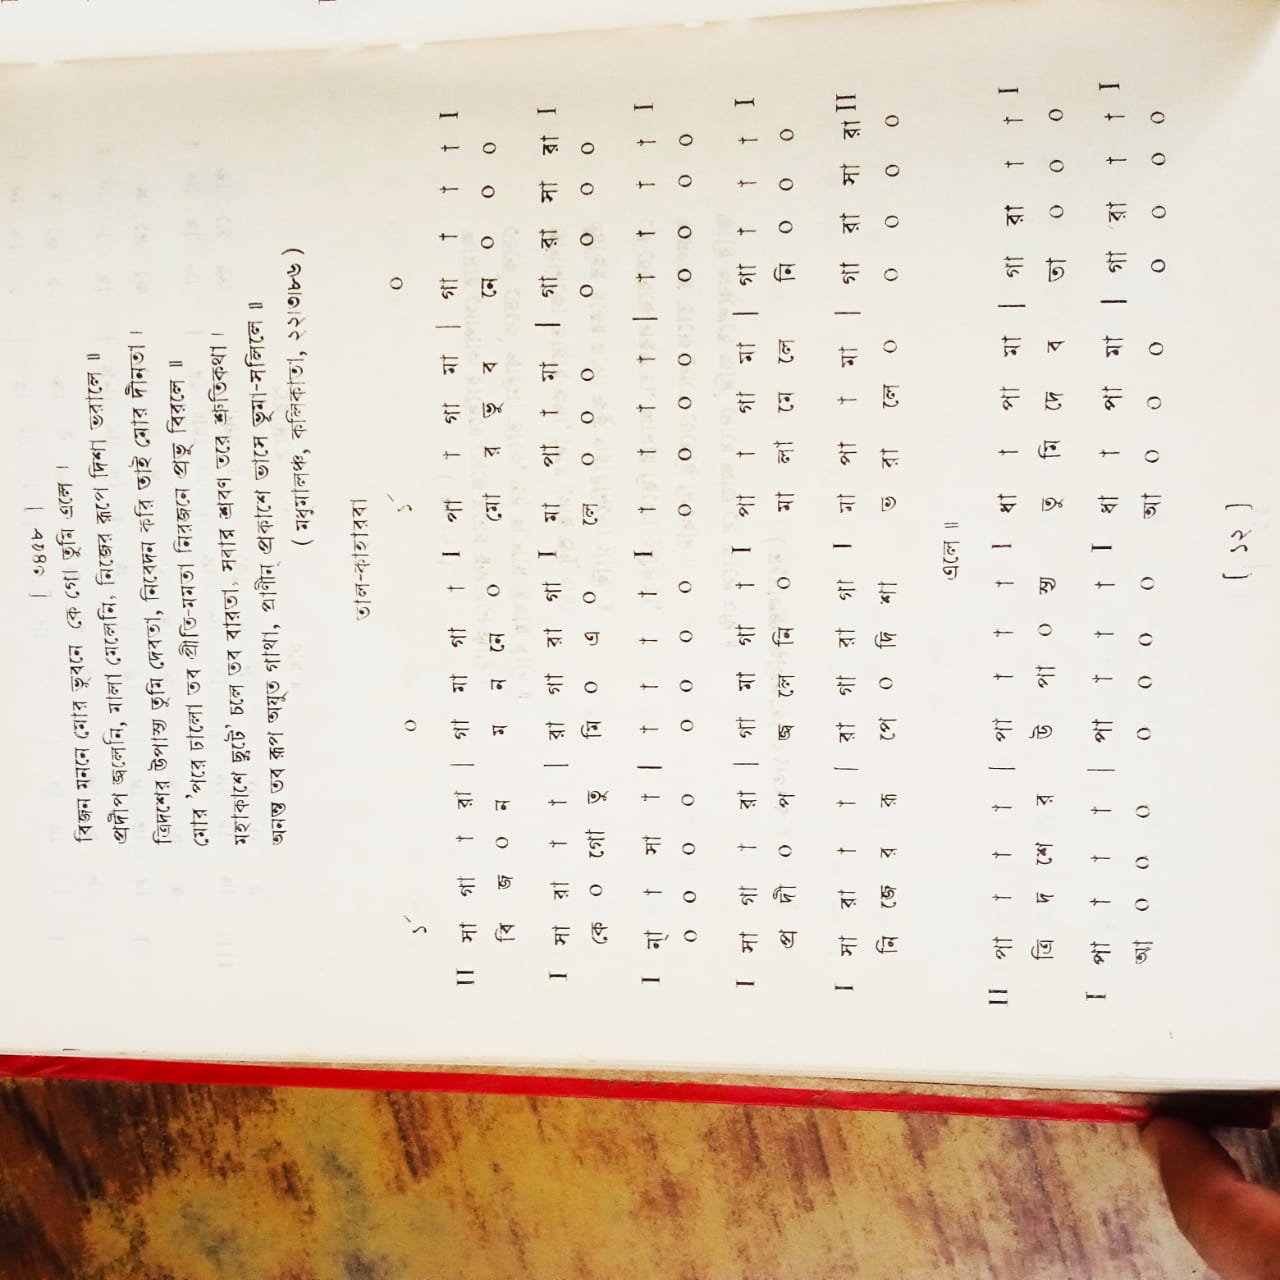 [ ৩৪৫৮ ]
বিজন মননে মোর ভুবনে কে গো তুমি এলে ।
প্রদীপ জ্বলেনি, মালা মেলেনি, নিজের রূপে দিশা ভরালে ॥
ত্রিদশের উপাস্ত তুমি দেবতা, নিবেদন করি তাই মোর দীনতা ।
মোর 'পরে ঢালো তব প্রীতি-মমতা নিরজনে প্রভু বিরলে ॥
মহাকাশে ছুটে' চলে তব বারতা, সবার শ্রবণ তরে শ্রুতিকথা ।
অনন্ত তব রূপ অযুত গাথা, প্রাণীন্ প্রকাশে ভাসে ভূমা-সলিলে ॥
( মধুমালঞ্চ, কলিকাতা, ২২।৩।৮৬ )
তাল-কাহারবা
১´ ০ ১´ ০
II সা গা † রা | গা মা গা † I পা † গা মা | গা † † † I
বি জ ০ ন ম ন নে ০ মো র ভু ব নে ০ ০ ০
I সা রা † † | রা গা রা গা I মা পা † মা | গা রা সা রা I
কে ০ গো তু মি ০ এ ০ লে ০ ০ ০ ০ ০ ০ ০
I ন্া † সা † | † † † † I † † † † | † † † † I
০ ০ ০ ০ ০ ০ ০ ০ ০ ০ ০ ০ ০ ০ ০ ০
I সা গা † রা | গা মা গা † I পা † গা মা | গা † † † I
প্র দী ০ প জ্ব লে নি ০ মা লা মে লে নি ০ ০ ০
I সা রা † † | রা গা রা গা I মা পা † মা | গা রা সা রা II
নি জে র রূ পে ০ দি শা ভ রা লে ০ ০ ০ ০ ০
এলে ॥
II পা † † † | পা † † † I ধা † পা মা | গা রা † † I
ত্রি দ শে র উ পা ০ স্ত তু মি দে ব তা ০ ০ ০
I পা † † † | পা † † † I ধা † পা মা | গা রা † † I
আ ০ ০ ০ ০ ০ ০ ০ আ ০ ০ ০ ০ ০ ০ ০
[ ১২ ]